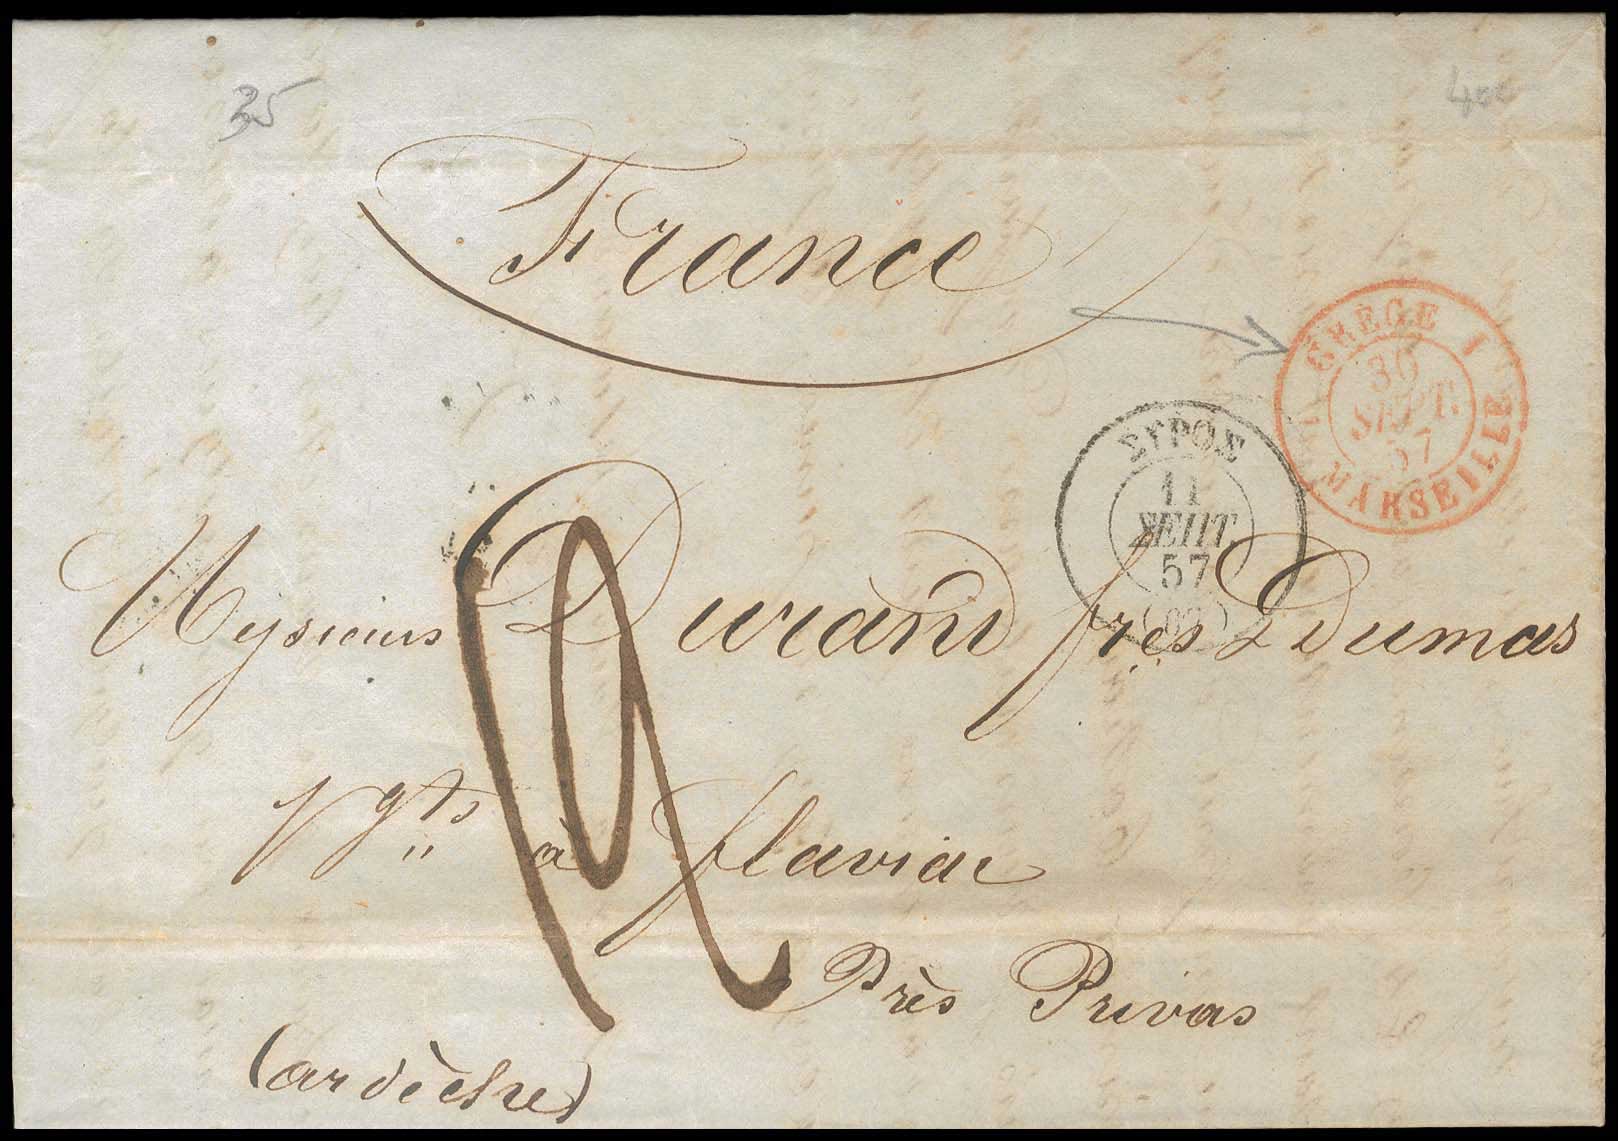 35
400
France
GRECE 1
30
SEPT.
57
MARSEILLE
ΣΥΡΟΣ
11
ΣΕΠΤ.
57
Messieurs Durand frès & Dumas
12
Ngts à flaviac
Près Privas
(ardèche)